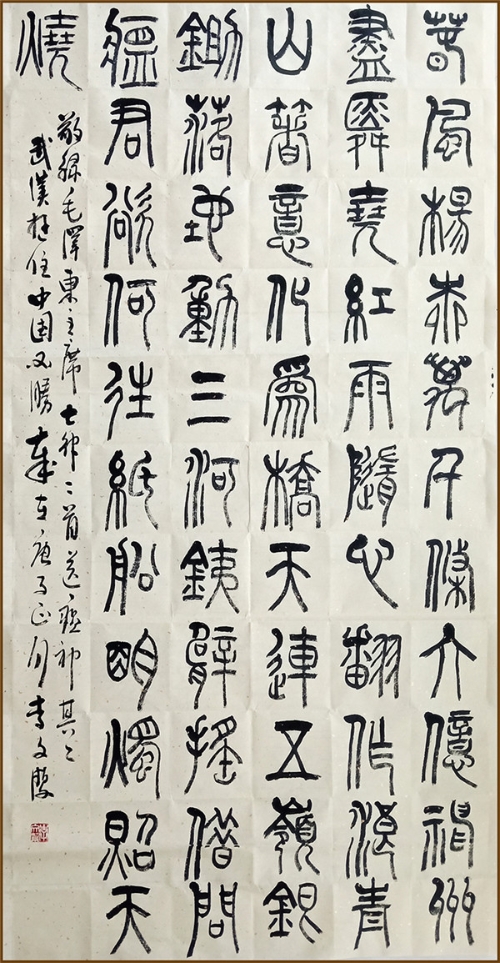 春風楊柳萬千條六億神州
盡舜堯紅雨隨心翻作浪青
山著意化為橋天連五嶺銀
鋤落地動三河銕臂搖借問
瘟君欲何往紙船明燭照天
燒
敬録毛澤東主席七律二首送瘟神其二
武漢挺住中国必勝歲在庚子正月李文